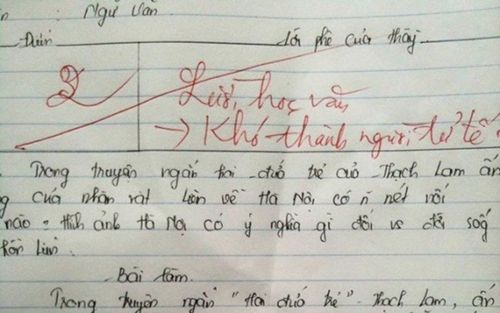 : Ngữ Văn
Điểm Lời phê của thầy
2 Lười học văn
→ Khó thành người tử tế
Trong truyện ngắn hai đứa trẻ của Thạch Lam ấn
g của nhân vật Liên về Hà Nội có n nét nổi
nào = Hình ảnh Hà Nội có ý nghĩa gì đối vs đời sống
hồn Liên.
Bài làm.
Trong truyện ngắn "Hai đứa trẻ". Thạch Lam, ấn